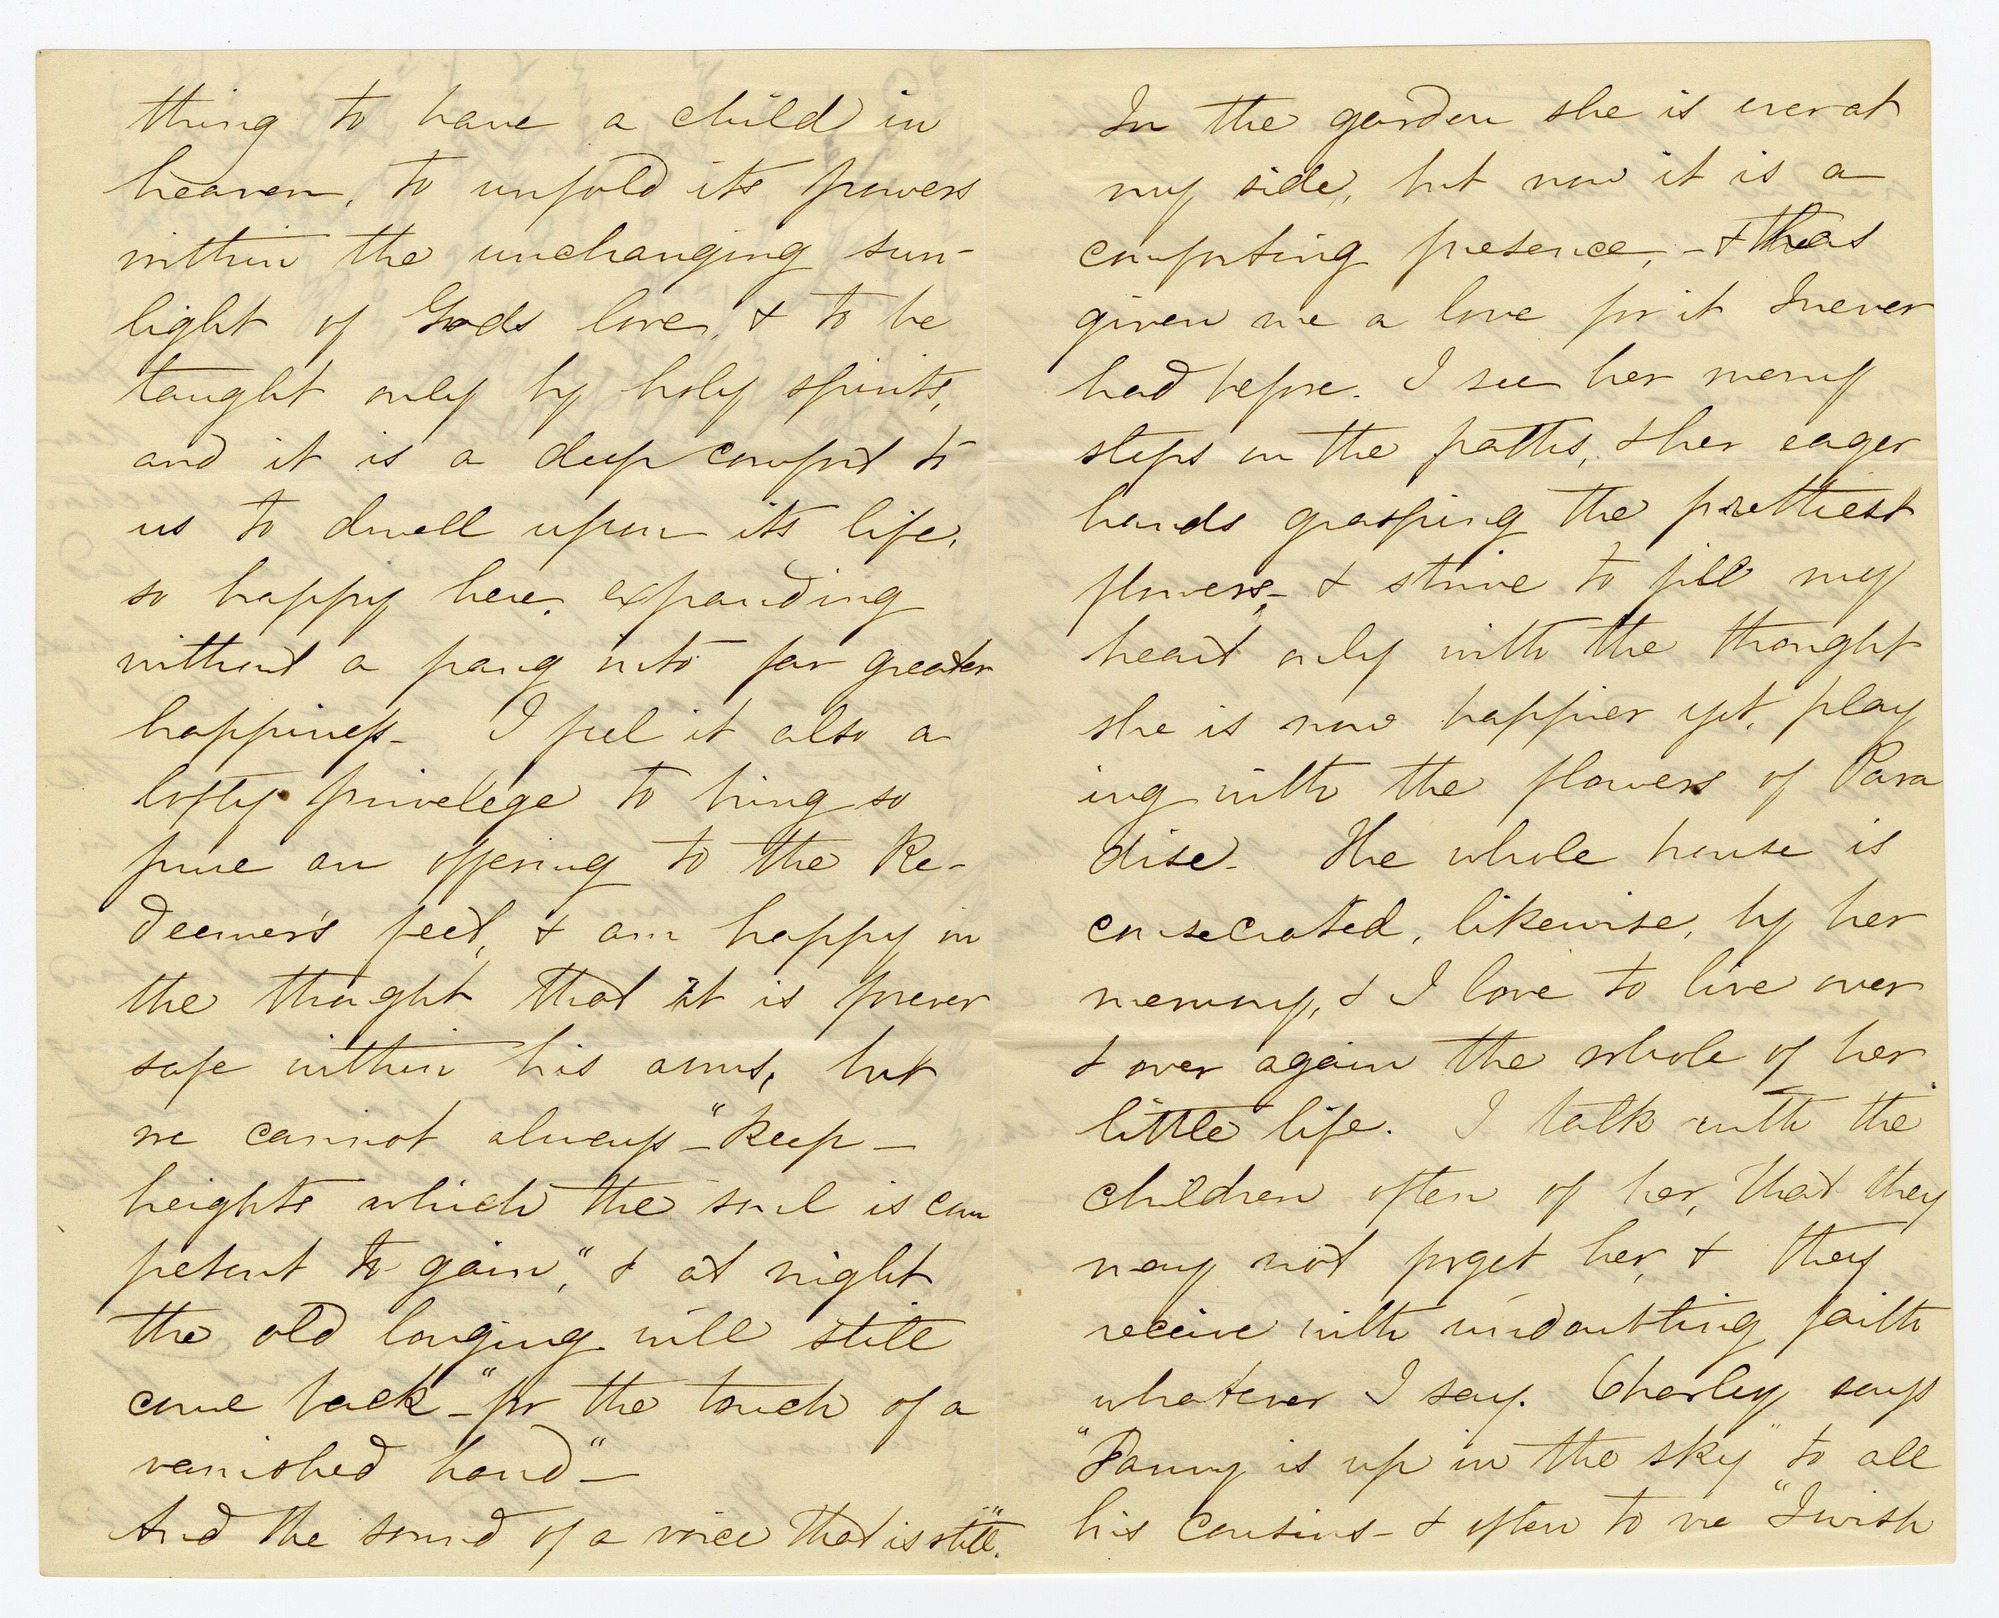 thing to have a child in
heaven, to unfold its powers
within the unchanging sun-
light of Gods love, & to be
taught only by holy spirits,
and it is a deep comfort to
us to dwell upon its life,
so happy here, expanding
without a pang into far greater
happiness- I feel it also a
lofty privelege to bring so
pure an offering to the Re-
deemer's feet, & am happy in
the thought that it is forever
safe within his arms, but
we cannot always - "keep -
heights which the soul is com
petent to gain", & at night
the old longing will still
come back - "for the touch of a
vanished hand" -
And the sound of a voice that is still".
In the garden she is ever at
my side, but now it is a
comforting presence, - & has
given me a love for it I never
had before. I see her merry
steps in the paths, & her eager
hands grasping the prettiest
flowers, - & strive to fill my
heart only with the thought
she is now happier yet, play
ing with the flowers of Para
dise. The whole house is
consecrated, likewise, by her
memory, & I love to live over
& over again the whole of her
little life. I talk with the
children often of her, that they
may not forget her, & they
receive with undoubting faith
whatever I say. Charley says
"Fanny is up in the sky" to all
his cousins - & often to me "I wish